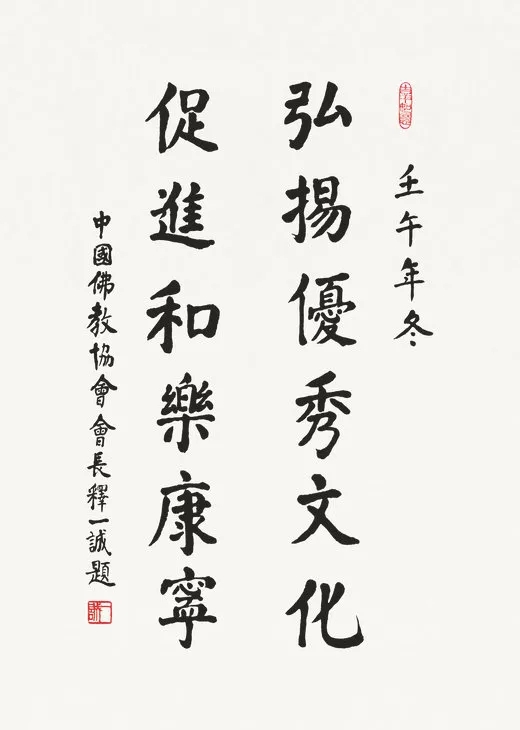 壬午年冬
弘揚優秀文化
促進和樂康寧
中國佛教協會會長釋一誠題